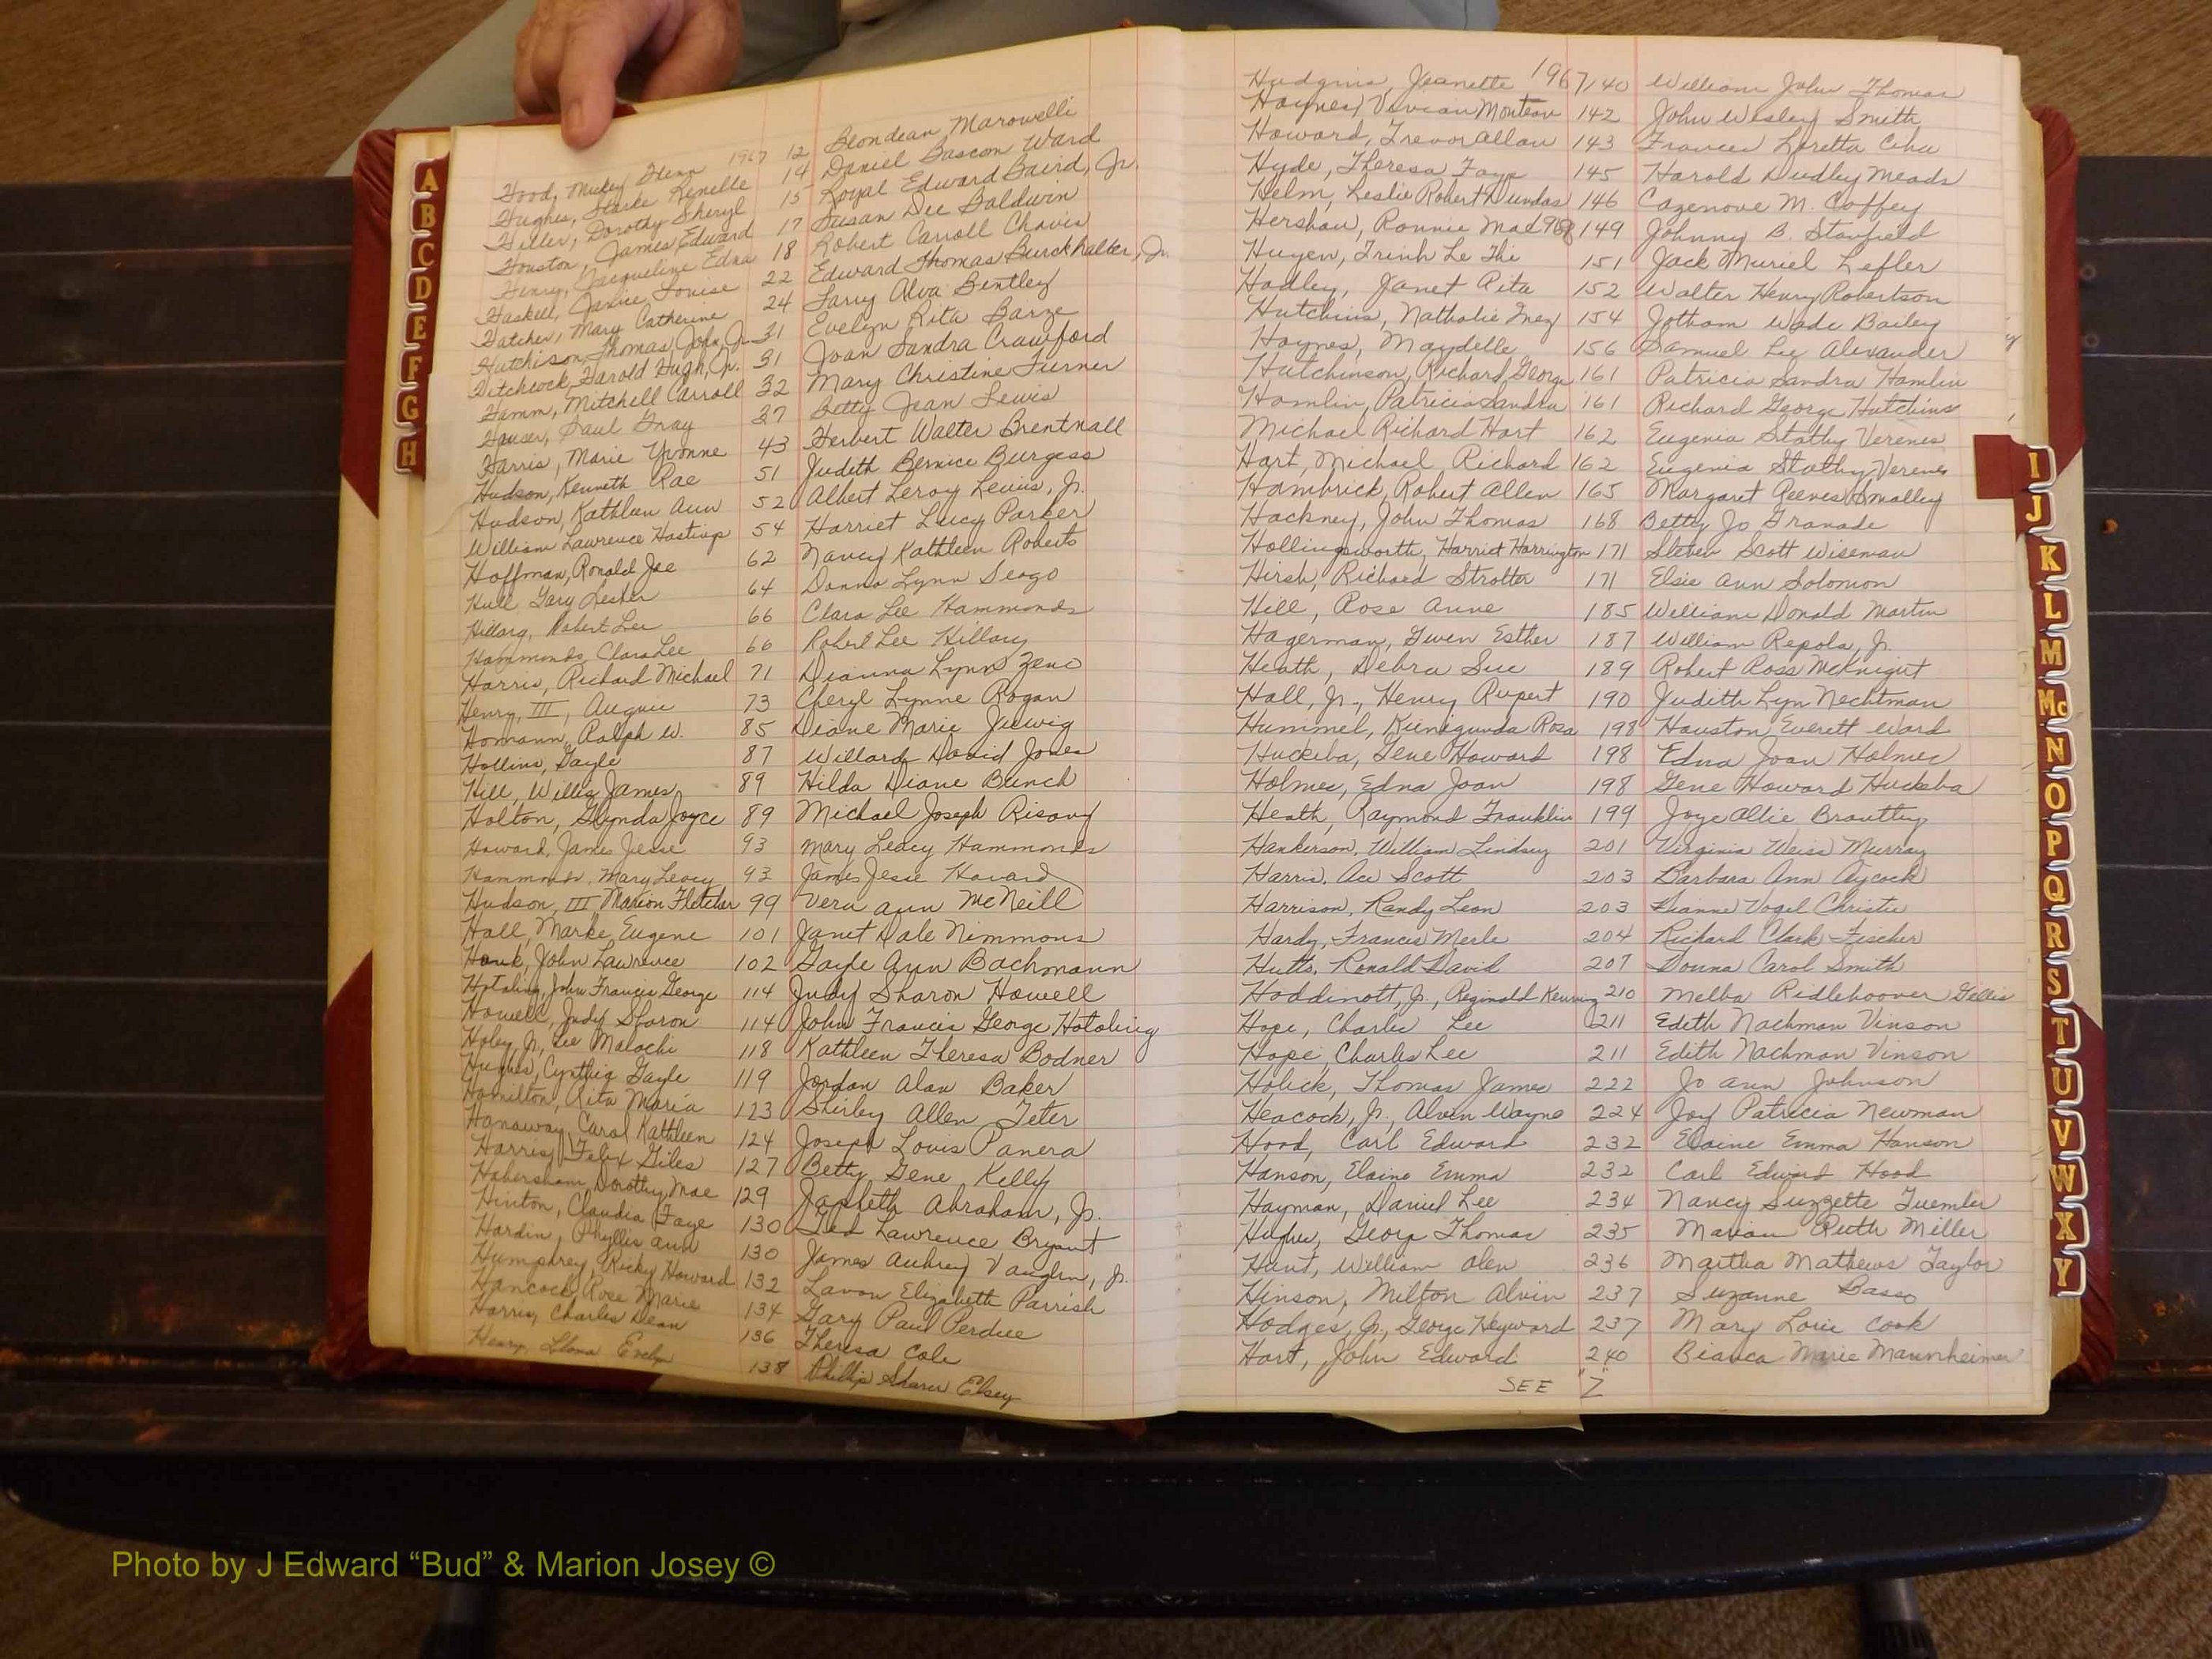 A
B
C
D
E
F
G
H
1967
Hood, Mickey Glenn 12 Blondean Marowelli
Hughes, Starke Renelle 14 Daniel Bascom Ward
Heller, Dorothy Sheryl 15 Royal Edward Baird, Jr.
Houston, James Edward 17 Susan Dee Baldwin
Henry, Jacqueline Edna 18 Robert Carroll Chavis
Haskell, Janice Louise 22 Edward Thomas Burckhalter, Jr.
Hatcher, Mary Catherine 24 Larry Alva Bentley
Hutchison, Thomas John, Jr. 31 Evelyn Rita Barze
Hitchcock, Harold Hugh, Jr. 31 Joan Sandra Crawford
Hamm, Mitchell Carroll 32 Mary Christine Turner
Hauser, Paul Gray 37 Betty Jean Lewis
Harris, Marie Yvonne 43 Herbert Walter Brentnall
Hudson, Kenneth Rae 51 Judith Bernice Burgess
Hudson, Kathleen Ann 52 Albert Leroy Lewis, Jr.
William Lawrence Hastings 54 Harriet Lucy Parker
Hoffman, Ronald Joe 62 Nancy Kathleen Roberts
Hull Gary Lester 64 Donna Lynn Seago
Hillary, Robert Lee 66 Clara Lee Hammonds
Hammonds, Clara Lee 66 Robert Lee Hillary
Harris, Richard Michael 71 Dianna Lynn Zeno
Henry, III, August 73 Cheryl Lynne Rogan
Homann, Ralph W. 85 Diane Marie Juwig
Hollins, Dayle 87 Willard David Jones
Hill, Willis James 89 Hilda Diane Bunch
Holton, Glynda Joyce 89 Michael Joseph Risavy
Howard, James Jesse 93 Mary Leacy Hammonds
Hammonds, Mary Leacy 93 James Jesse Howard
Hudson, III Marion Fletcher 99 Vera Ann McNeill
Hall, Marke Eugene 101 Janet Dale Nimmons
Houk, John Lawrence 102 Gayle Ann Bachmann
Hotaling, John Francis George 114 Judy Sharon Howell
Howell, Judy Sharon 114 John Francis George Hotaling
Holey Jr, Lee Malachi 118 Kathleen Theresa Bodner
Hughes, Cynthia Gayle 119 Jordan Alan Baker
Hamilton, Rita Maria 123 Shirley Allen Teter
Hanaway, Carol Kathleen 124 Joseph Louis Panera
Harris, Felix Giles 127 Betty Gene Kelly
Habersham, Dorothy Mae 129 Japheth Abraham, Jr.
Hinton, Claudia Faye 130 Ted Lawrence Bryant
Hardin, Phyllis Ann 130 James Aubrey Vaughn, Jr.
Humphrey, Ricky Howard 132 Lavon Elizabeth Parrish
Hancock, Rose Marie 134 Gary Paul Perdue
Harris, Charles Dean 136 Theresa Cole
Henry, Llona Evelyn 138 Phillip Sharer Elsey
1967
Hudgins, Jeanette 140 William John Thomas
Haynes, Vivian Monteau 142 John Wesley Smith
Howard, Trevor Allan 143 Frances Loretta Cihu
Hyde, Theresa Faye 145 Harold Dudley Meads
Helm, Leslie Robert Dundas 146 Cazenove M. Coffey
Hershau, Ronnie Mad 968 149 Johnny B. Stanfield
Huyen, Trinh Le Thi 151 Jack Muriel Lefler
Hadley, Janet Rita 152 Walter Henry Robertson
Hutchins, Nathalie Inez 154 Jotham Wade Bailey
Haynes, Maydelle 156 Samuel Lee Alexander
Hutchinson, Richard George 161 Patricia Sandra Hamlin
Hamlin, Patricia Sandra 161 Richard George Hutchins
Michael Richard Hart 162 Eugenia Stathy Verenes
Hart, Michael Richard 162 Eugenia Stathy Verenes
Hambrick, Robert Allen 165 Margaret Reeves Smalley
Hackney, John Thomas 168 Betty Jo Granade
Hollingsworth, Harriet Harrington 171 Steven Scott Wiseman
Hirsh, Richard Strotta 171 Elsie Ann Solomon
Hill, Rose Anne 185 William Donald Martin
Hagerman, Gwen Esther 187 William Repola, Jr.
Heath, Debra Sue 189 Robert Ross McKnight
Hall, Jr., Henry Rupert 190 Judith Lyn Nechtman
Hummel, Kunigunda Rosa 198 Houston Everett Ward
Huckeba, Gene Howard 198 Edna Joan Holmes
Holmes, Edna Joan 198 Gene Howard Huckeba
Heath, Raymond Franklin 199 Joye Allie Brantley
Hankerson, William Lindsey 201 Virginia Weiss Murray
Harris, Ace Scott 203 Barbara Ann Aycock
Harrison, Randy Leon 203 Dianne Vogel Christie
Hardy, Francis Merle 204 Richard Clark Fischer
Hutto, Ronald David 207 Donna Carol Smith
Hoddinott, Jr., Reginald Kenning 210 Melba Ridlehoover Gillis
Hope, Charlie Lee 211 Edith Nachman Vinson
Hope, Charles Lee 211 Edith Nachman Vinson
Holick, Thomas James 222 Jo Ann Johnson
Heacock, Jr., Alvin Wayne 224 Joy Patricia Newman
Hood, Carl Edward 232 Elaine Emma Hanson
Hanson, Elaine Emma 232 Carl Edward Hood
Hayman, Daniel Lee 234 Nancy Suzzette Tuemler
Hughes, George Thomas 235 Marian Ruth Miller
Hunt, William Olen 236 Martha Mathews Taylor
Hinson, Milton Alvin 237 Suzanne Basso
Hodges, Jr., George Heyward 237 Mary Lorie Cook
Hart, John Edward 240 Bianca Marie Mannheimer
SEE "Z"
I
J
K
L
M
Mc
N
O
P
Q
R
S
T
U
V
W
X
Y
Photo by J Edward “Bud” & Marion Josey ©